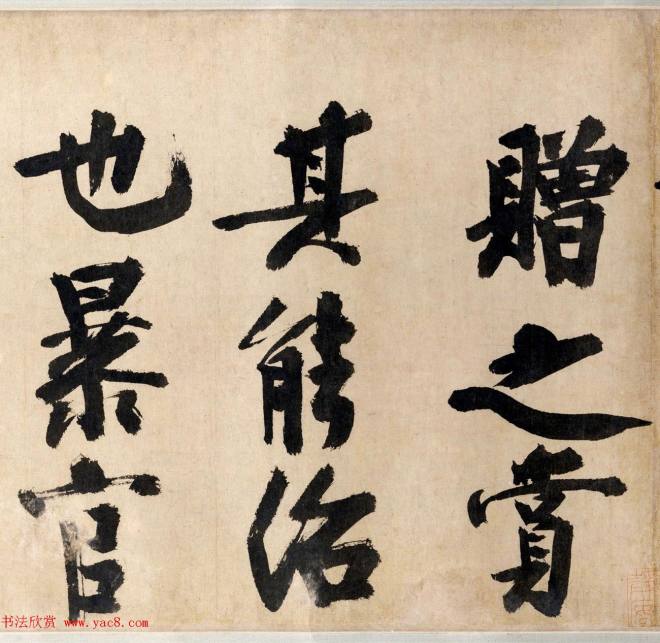 贈之賞
其能治
也暴官
书法欣赏 www.yac8.com